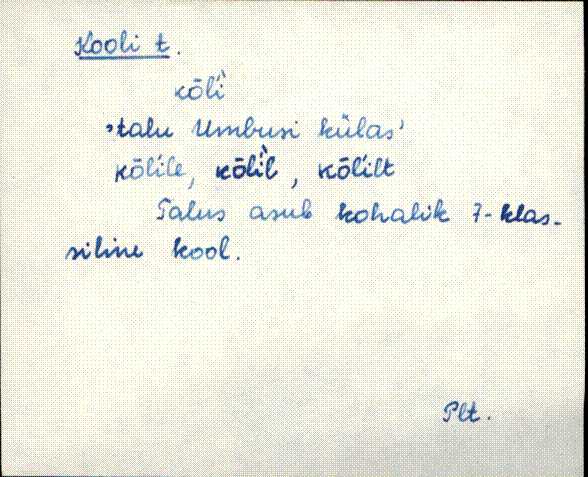 Kooli t.
kōĺì
'talu Umbusi külas'
kōĺile, kōĺìl, kōĺilt
Talus asub kohalik 7-klas-
siline kool.
Plt.